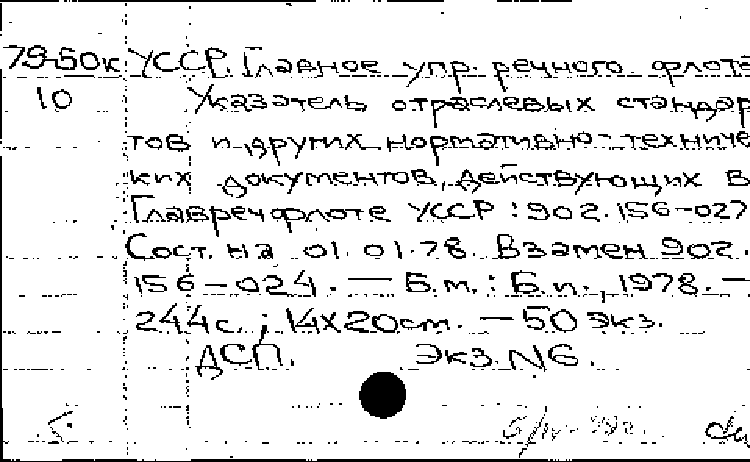 79-50к УССР. Главное упр. речного флота
10 Указатель отраслевых стандар
тов и других нормативно-техниче
ких документов, действующих в
Главречфлоте УССР : 902.156-027
Сост. на 01.01.78. Взамен 902.
156-024. — Б.м. : Б.и., 1978. —
244 с. ; 14х20 см. — 50 экз.
ДСП. Экз. N6.